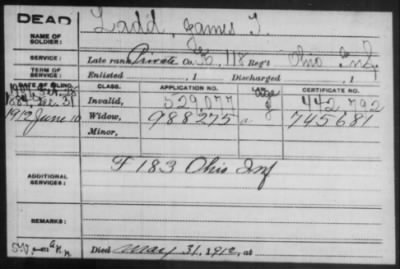 DEAD
NAME OF SOLDIER: Ladd, James T.
SERVICE: Late rank, Private Co. 118 Reg't Ohio Inf.
TERM OF SERVICE: Enlisted , 1 Discharged , 1
DATE OF FILING. CLASS. APPLICATION NO. LAW. CERTIFICATE NO.
Invalid, 529,077 442,792
1912 June 10 Widow, 988275 745681
Minor,
ADDITIONAL SERVICES: F 183 Ohio Inf
REMARKS:
Died May 31, 1912, at